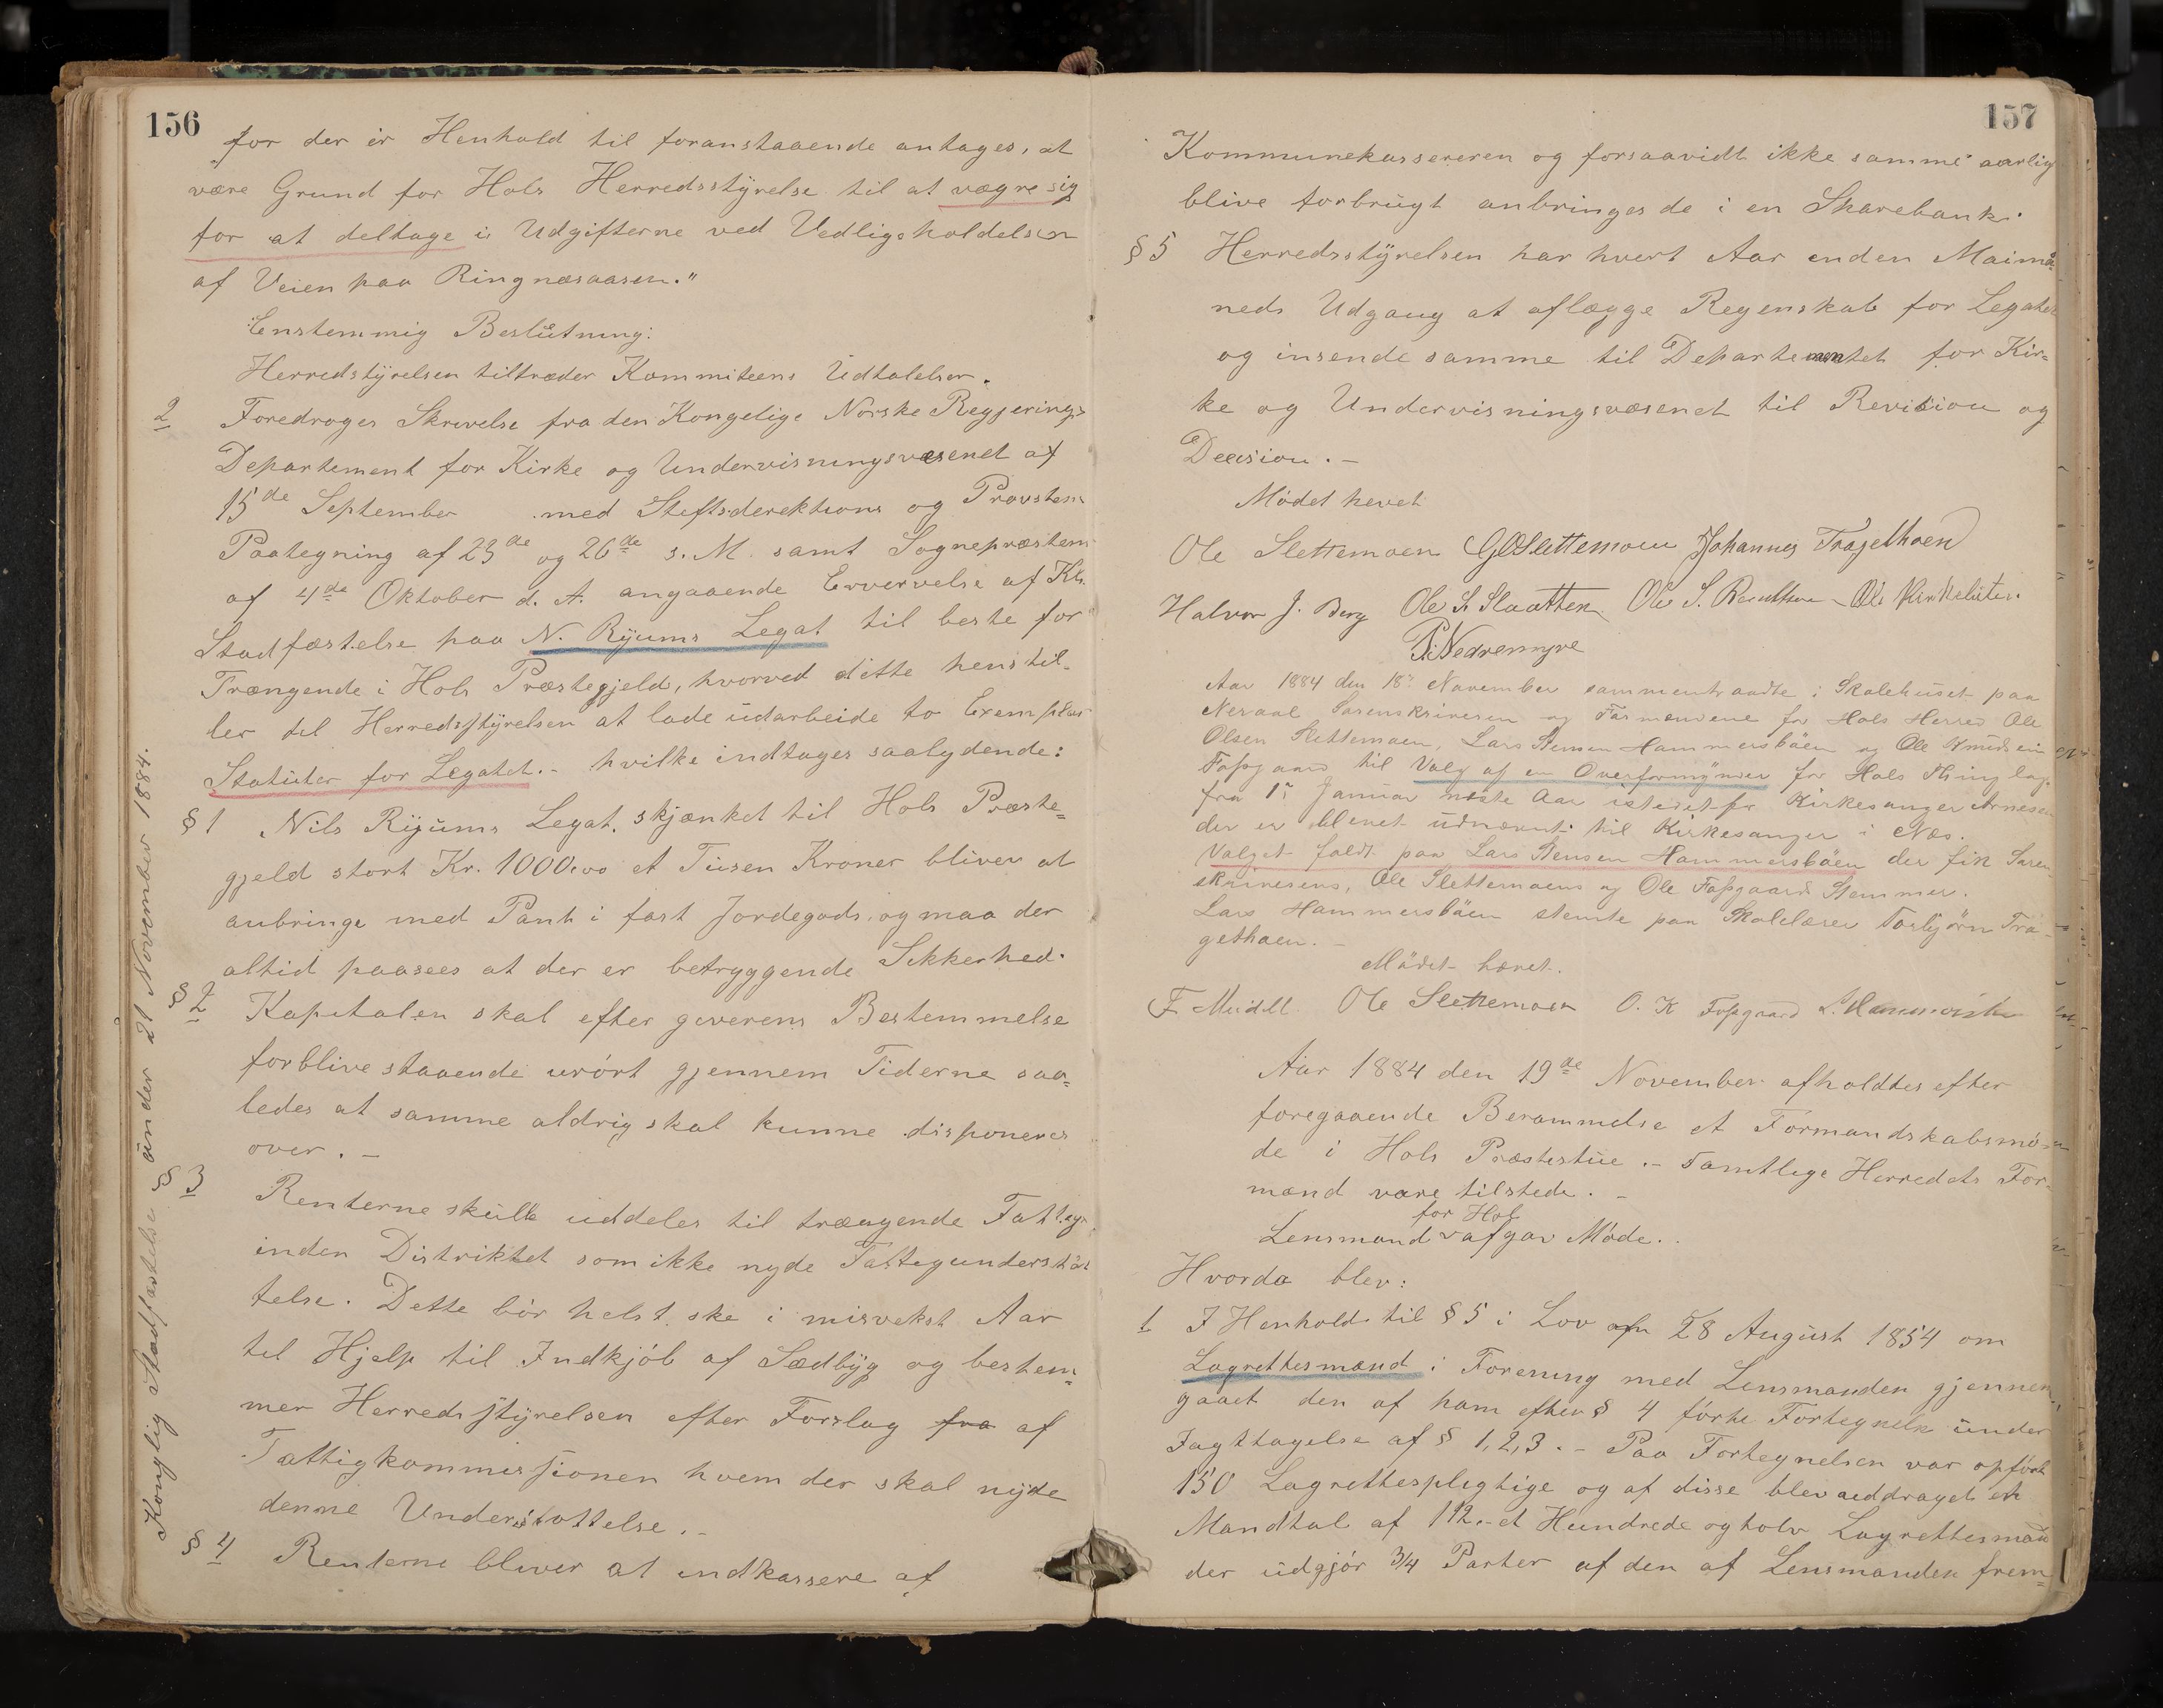 156
for der i Henhold til foranstaaende antages, at
være Grund for Hols Herredsstyrelse til at vægre sig
for at deltage i Udgifterne ved Vedligeholdelsen
af Veien paa Ringnæsaasen."
Enstemmig Beslutning:
Herredstyrelsen tiltræder Kommiteens Udtalelser.
2 Foredroges Skrivelse fra den Kongelige Norske Regjerings
Departement for Kirke og Undervisningsvæsenet af
15de September med Stiftsderektions og Provstens
Paategning af 23de og 26de s. M. samt Sognepræstens
af 4de Oktober d. A. angaaende Erververlse af Kgl.
Stadfæstelse paa N. Ryums Legat til beste for
Trængende i Hols Præstegjeld, hvorved dette henstil-
ler til Herredsstyrelsen at lade udarbeide to Exemplar
Statuter for Legatet.- hvilke indtages saalydende:
§ 1 Nils Ryums Legat, skjænket til Hols Præste=
gjeld stort Kr. 1000,00 et Tusen Kroner bliver at
anbringe med Pant i fast Jordegods, og maa der
altid paasees at der er betryggende Sikkerhed.
§ 2 Kapitalen skal efter giverens Bestemmelse
forblive staaende urört gjennem Tiderne saa=
ledes at samme aldrig skal kunne disponeres
over. -
§ 3 Renterne skulle uddeles til trængende Fattige
inden Distriktet som ikke nyde Fattigunderstöt
telse. Dette bör helst ske i misvekst Aar
til Hjelp til Indkjöb af Sædbyg og bestem=
mer Herredsstyrelsen efter Forslag fra af
Fattigkommissionen hvem der skal nyde
denne Understottelse. -
§ 4 Renterne bliver at indkassere af
Konglig Stadfæstelse under 21 November 1884.
157
Kommunekassereren og forsaavidt ikke samme aarlig
blive forbrugt anbringes de i en Sparebank.
§ 5 Herredsstyrelsen har hvert Aar enden Maimå
neds Udgang at aflægge Regenskab for Legatet
og insende samme til Departementet for Kir=
ke og Undervisningsvæsenet til Revision og
Decision. -
Mödet hevet
Ole Slettemoen GOSlettemoen Johannes Tragethoen
Halvor J. Berg Ole S. Slaatten Ole S.
P. Nedremyre
Aar 1884 den 18de November sammentraadte i Skolehuset paa
Neraal Sorenskriveren og Formændene for Hols Herred Ole
Olsen Slettemoen, Lars Stensen Hammersböen og Ole Knudsen
Fossgaard til Valg af en Overformynder for Hols Thinglag
fra 1ste Januar næste Aar istedetfor Kirkesanger Arnesen
der er blevet udnævnt til Kirkesanger i Næs.
Valget faldt paa Lars Stensen Hammersböen der fik Soren
skriverens, Ole Slettemoens og Ole Fossgaards Stemmer.
Lars Hammersböen stemte paa Skolelærer Torbjörn Tra-
gethoen. -
Mödet hævet.
F Meidell Ole Slettemoen O. K Fossgaard L. Hammersböen
Aar 1884 den 19de November afholdtes efter
foregaaende Berammelse et Formandskabsmö=
de i Hols Præstestue. - Samtlige Herredets For=
mænd vare tilstede. -
for Hol
Lensmand afgav Möde.
Hvorda blev:
1 I Henhold til § 5 i Lov af 28 August 1854 om
Lagrettesmænd i Forening med Lensmanden gjennem
gaaet den af ham efter § 4 förte Fortegnelse under
Iagttagelse af § 1, 2, 3. - Paa Fortegnelsen var opfört
150 Lagrettespligtige og af disse blev uddraget et
Mandtal af 112.- et Hundrede og tolv Lagrettesmæn
der udgjör 3/4 Parter af den af Lensmanden frem=